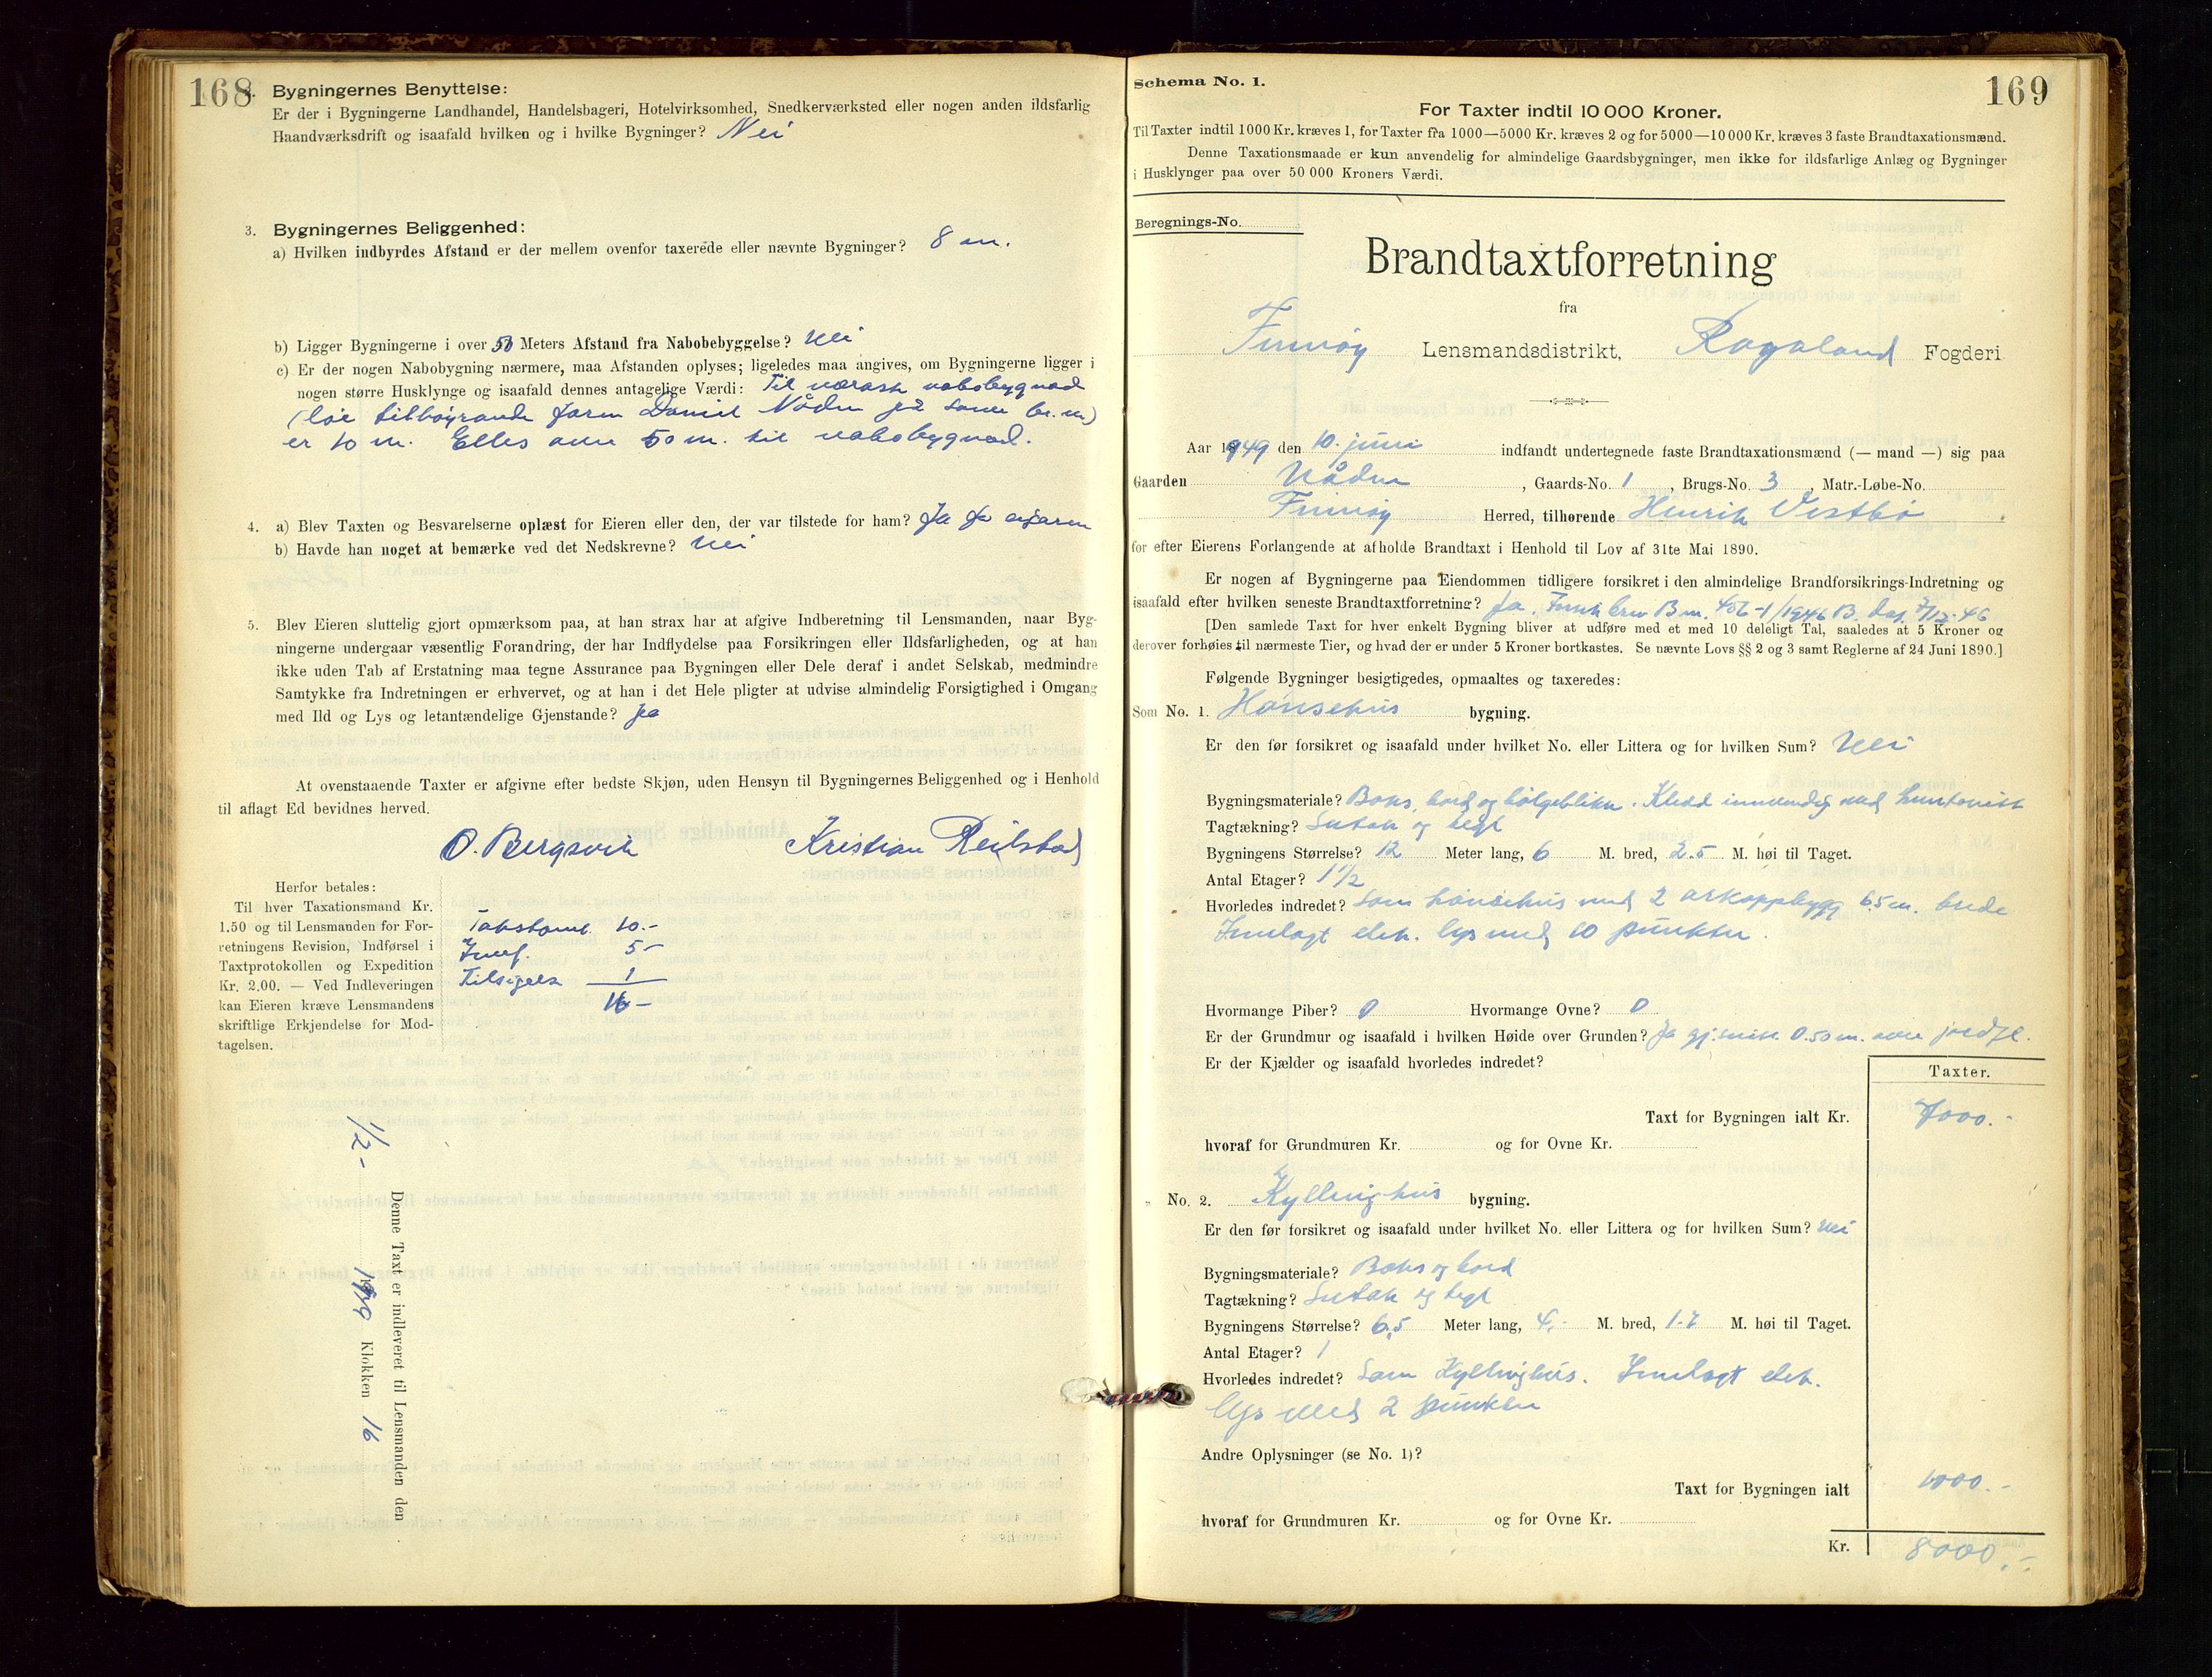 168
Bygningernes Benyttelse:
Er der i Bygningerne Landhandel, Handelsbageri, Hotelvirksomhed, Snedkerværksted eller nogen anden ildsfarlig
Haandværksdrift og isaafald hvilken og i hvilke Bygninger? Nei
3. Bygningernes Beliggenhed:
a) Hvilken indbyrdes Afstand er der mellem ovenfor taxerede eller nævnte Bygninger? 8 m.
b) Ligger Bygningerne i over 50 Meters Afstand fra Nabobebyggelse? Nei
c) Er der nogen Nabobygning nærmere, maa Afstanden oplyses; ligeledes maa angives, om Bygningerne ligger i
nogen større Husklynge og isaafald dennes antagelige Værdi: Til nærask nabobygnad
(løe tilhøyrande Daniel Nåden på same br.nr)
er 10 m. Elles over 50 m. til nabobygnad.
4. a) Blev Taxten og Besvarelserne oplæst for Eieren eller den, der var tilstede for ham? Ja for eigaren
b) Havde han noget at bemærke ved det Nedskrevne? Nei
5. Blev Eieren sluttelig gjort opmærksom paa, at han strax har at afgive Indberetning til Lensmanden, naar Byg-
ningerne undergaar væsentlig Forandring, der har Indflydelse paa Forsikringen eller Ildsfarligheden, og at han
ikke uden Tab af Erstatning maa tegne Assurance paa Bygningen eller Dele deraf i andet Selskab, medmindre
Samtykke fra Indretningen er erhvervet, og at han i det Hele pligter at udvise almindelig Forsigtighed i Omgang
med Ild og Lys og letantændelige Gjenstande? Ja
At ovenstaaende Taxter er afgivne efter bedste Skjøn, uden Hensyn til Bygningernes Beliggenhed og i Henhold
til aflagt Ed bevidnes herved.
O. Bergsvik Kristian Reilstad
Herfor betales:
Til hver Taxationsmand Kr.
1.50 og til Lensmanden for For-
retningens Revision, Indførsel i
Taxtprotokollen og Expedition
Kr. 2.00. — Ved Indleveringen
kan Eieren kræve Lensmandens
skriftlige Erkjendelse for Mod-
tagelsen.
Takstom. 10.-
Innf. 5-
Tilsigels 1
16-
Denne Taxt er indleveret til Lensmanden den
1/2- 1949 Klokken 16
Schema No. 1.
169
For Taxter indtil 10 000 Kroner.
Til Taxter indtil 1000 Kr. kræves 1, for Taxter fra 1000—5000 Kr. kræves 2 og for 5000—10 000 Kr. kræves 3 faste Brandtaxationsmænd.
Denne Taxationsmaade er kun anvendelig for almindelige Gaardsbygninger, men ikke for ildsfarlige Anlæg og Bygninger
i Husklynger paa over 50 000 Kroners Værdi.
Beregnings-No.
Brandtaxtforretning
fra
Finnøy Lensmandsdistrikt, Rogaland Fogderi
Aar 1949 den 10. juni indfandt undertegnede faste Brandtaxationsmænd (— mand —) sig paa
Gaarden Nåden, Gaards-No. 1, Brugs-No. 3, Matr.-Løbe-No.
Finnøy Herred, tilhørende Henrik Vestbø
for efter Eierens Forlangende at afholde Brandtaxt i Henhold til Lov af 31te Mai 1890.
Er nogen af Bygningerne paa Eiendommen tidligere forsikret i den almindelige Brandforsikrings-Indretning og
isaafald efter hvilken seneste Brandtaxtforretning? Ja. B.nr. 456-1/1946 B. 7/12-46
[Den samlede Taxt for hver enkelt Bygning bliver at udføre med et med 10 deleligt Tal, saaledes at 5 Kroner og
derover forhøies til nærmeste Tier, og hvad der er under 5 Kroner bortkastes. Se nævnte Lovs §§ 2 og 3 samt Reglerne af 24 Juni 1890.]
Følgende Bygninger besigtigedes, opmaaltes og taxeredes:
Som No. 1. Hønsehus bygning.
Er den før forsikret og isaafald under hvilket No. eller Littera og for hvilken Sum? Nei
Bygningsmateriale? Boks, bord og bølgeblikk. Kledd innvendig med huntonitt
Tagtækning? Sutak og tegl
Bygningens Størrelse? 12 Meter lang, 6 M. bred, 2.5 M. høi til Taget.
Antal Etager? 1 1/2
Hvorledes indredet? Som hønsehus med 2 arkoppbygg 6.5 m. brede
Innlagt elek. lys med 10 punkter.
Hvormange Piber? 0 Hvormange Ovne? 0
Er der Grundmur og isaafald i hvilken Høide over Grunden? Ja gj.snitt 0.50 m. over jord
Er der Kjælder og isaafald hvorledes indredet?
Taxter.
Taxt for Bygningen ialt Kr. 7000.-
hvoraf for Grundmuren Kr. og for Ovne Kr.
" No. 2. Kyllinghus bygning.
Er den før forsikret og isaafald under hvilket No. eller Littera og for hvilken Sum? Nei
Bygningsmateriale? Boks og bord
Tagtækning? Sutak og tegl
Bygningens Størrelse? 6,5 Meter lang, 4,- M. bred, 1.7 M. høi til Taget.
Antal Etager? 1
Hvorledes indredet? Som Kyllinghus. Innlagt elek.
lys med 2 punkter
Andre Oplysninger (se No. 1)?
Taxt for Bygningen ialt 1000.-
hvoraf for Grundmuren Kr. og for Ovne Kr.
Kr. 8000.-